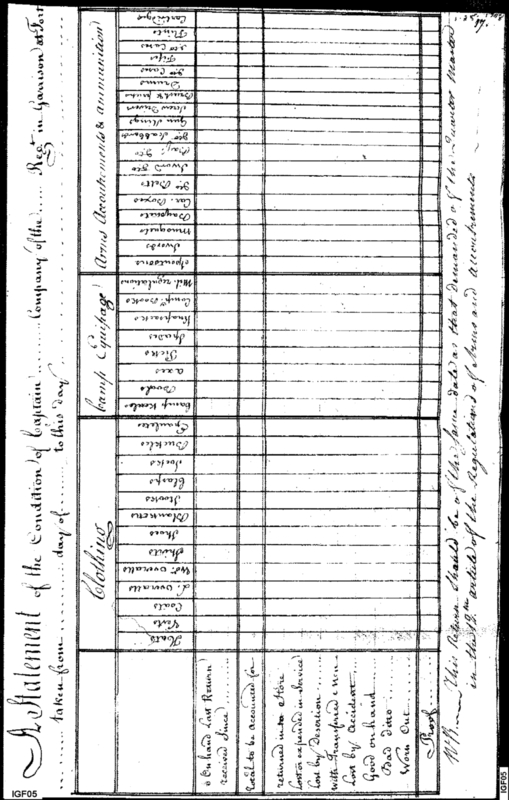 A Statement of the Condition of Captain ........ Company of the ...... Regt in Garrison at Fort
taken from .......... day of ........ to this day
Clothing
Camp Equipage
Arms Accoutrements & ammunition
Hats
Vests
Coats
L. overalls
Wn. overalls
Shirts
Shoes
Blankets
Stocks
Clasps
Socks
Buckles
Camp Kettles
axes
Picks
Spades
Knapsacks
Comp. Books
Mil. regulations
Espontoons
Swords
Musquets
Bayonets
Car. Boxes
do Belts
Sword do
Bay: do
do Scabbards
Gun Slings
Screw Drivers
Brush & picks
Drums
do Cases
Fifes
do Cases
Flints
Cartridges
On hand Last Return
received Since
total to be accounted for
returned into Store
Lost or expended in Service
Lost by desertion
with transferred men
Lost by accident
Good on hand
Bad ditto
Worn Out
Proof
NB. This Return Should be of the Same date as that demanded of the Quarter Master
in the 12th article of the Regulations of Arms and accoutrements
IGF05
IGF05